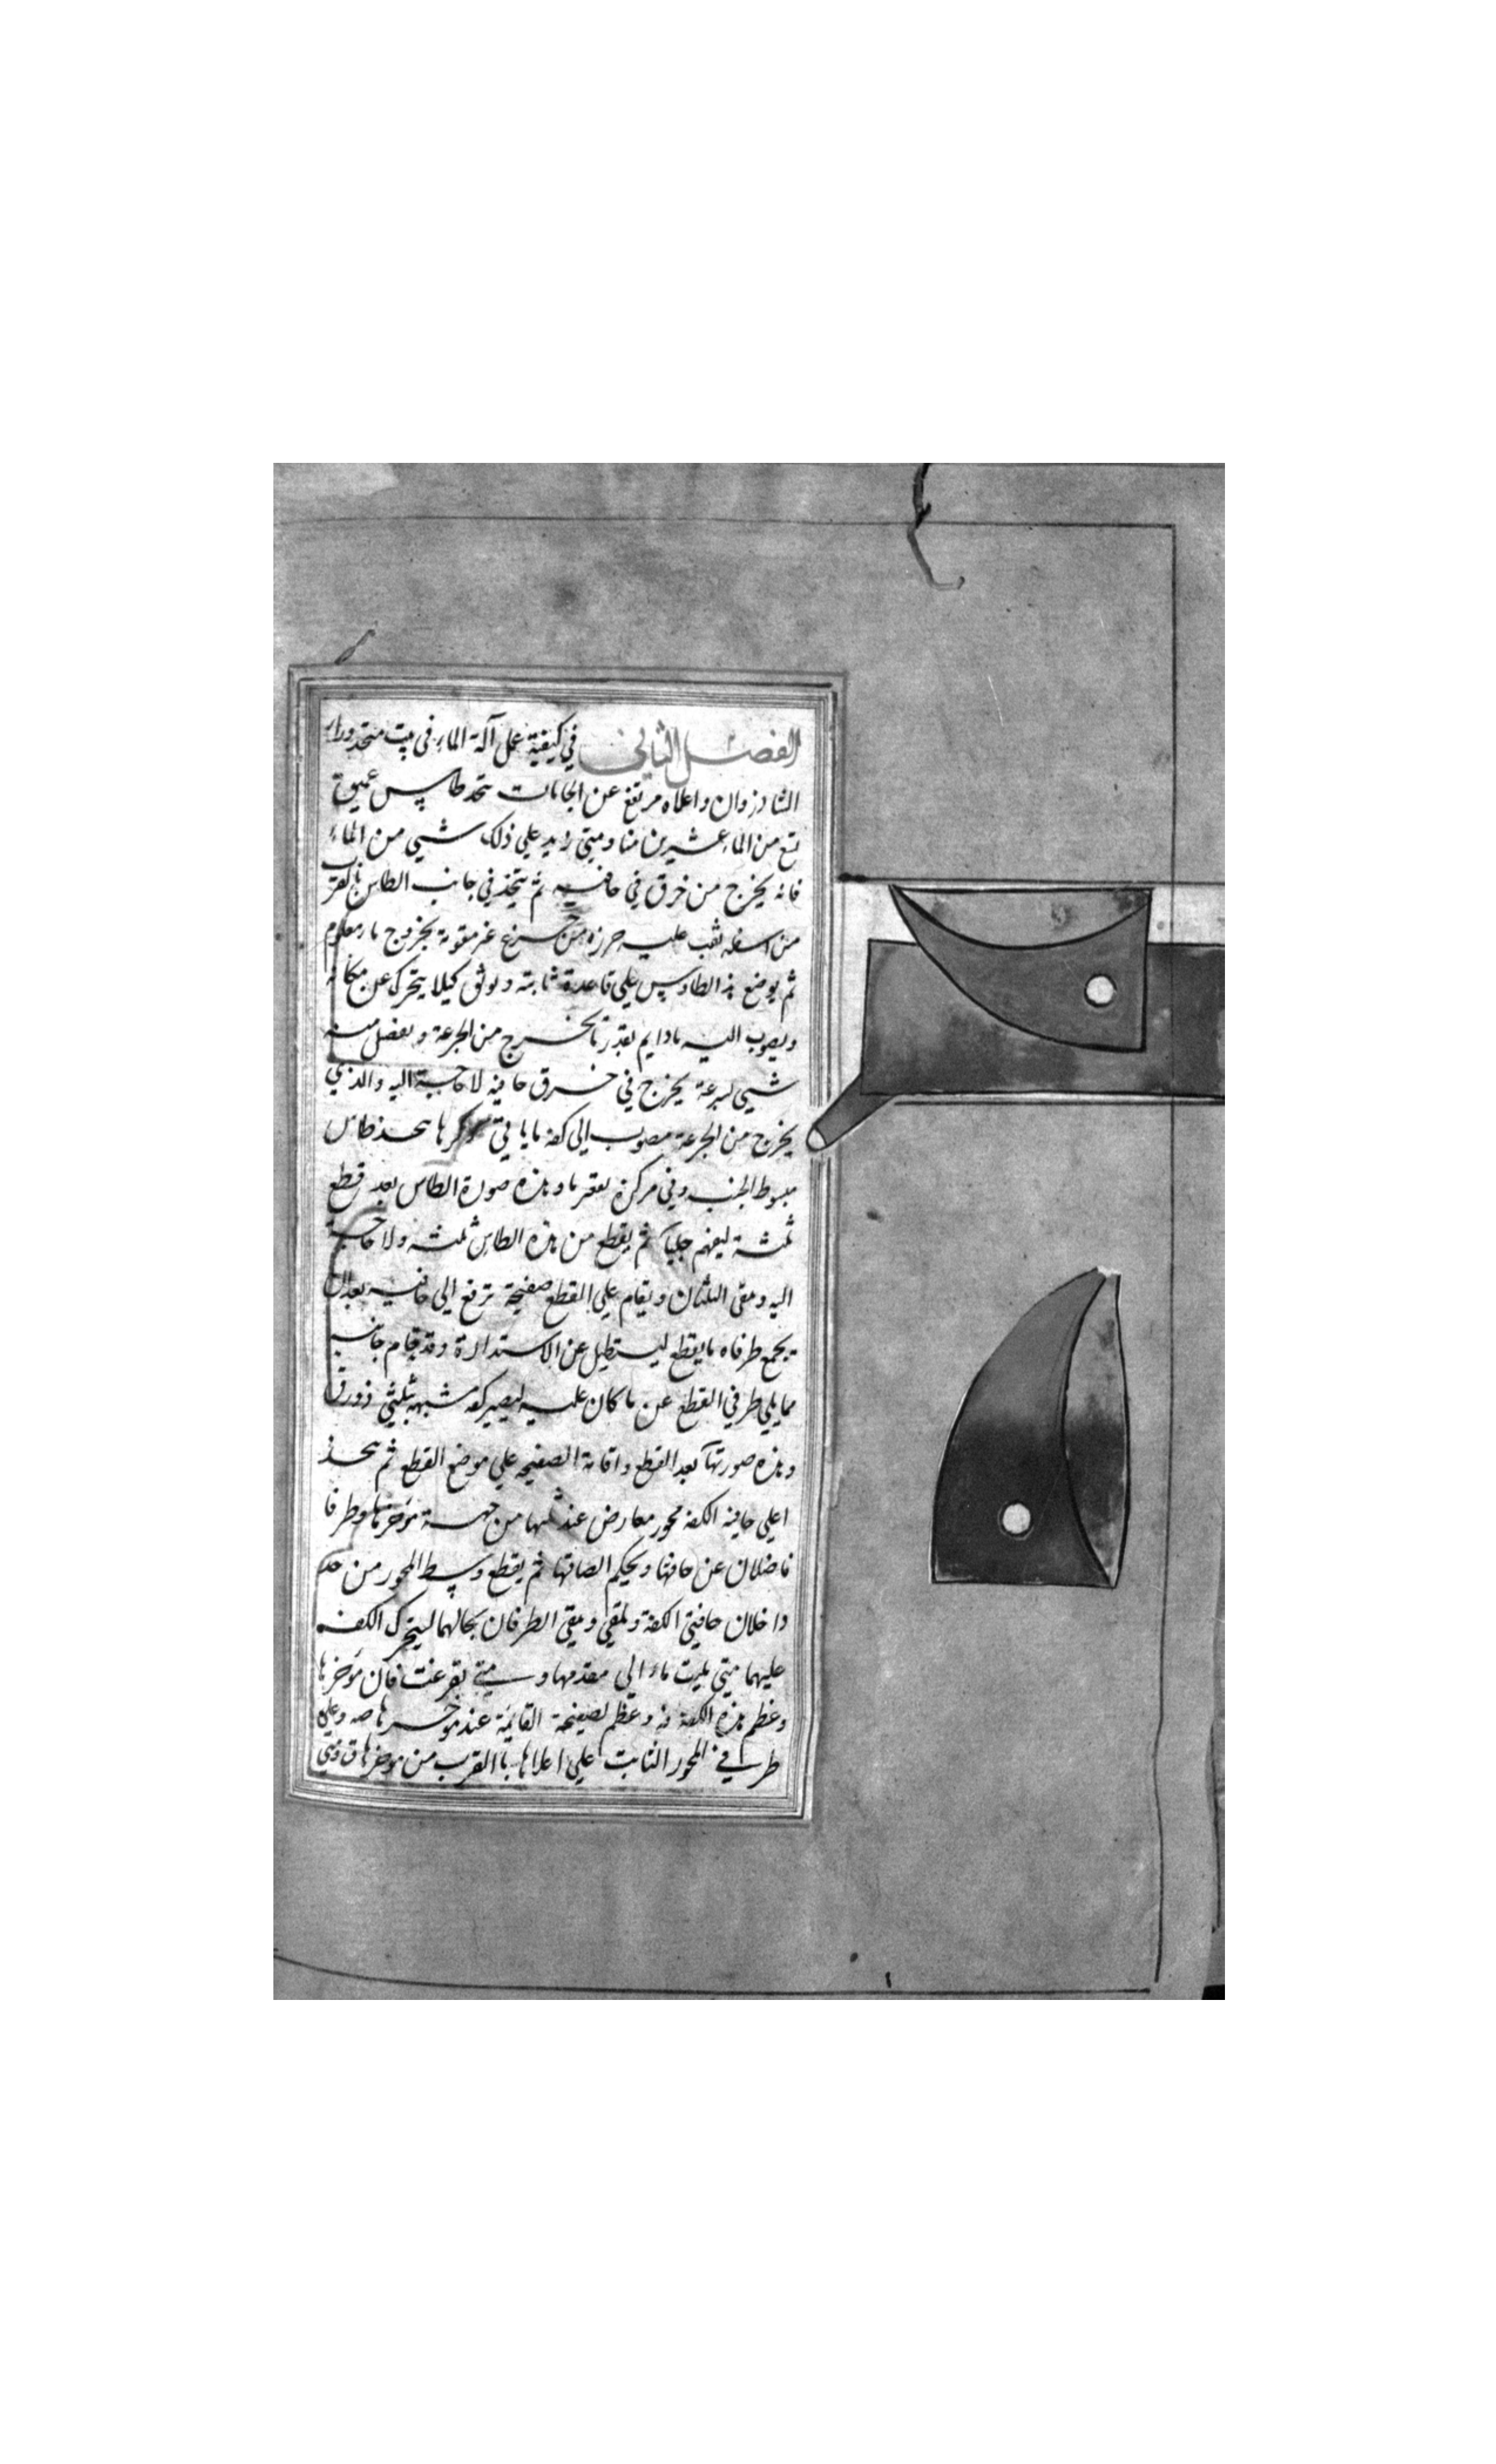 الفصل الثاني في كيفية عمل آلة الماء في بيت متحذ وراء
الشاذروان واعلاه مرتفع عن الجامات يتحذ طاس عميق
يتع من الماء عشرين منا ومتي زيد علي ذلك شيي من الماء
فانه يخرج من خرق في حافيه ثم يتخذ في جانب الطاس بالقرب
من اسفله ثقب عليه خرزة من جزع غير مثقوبة يخروج ماء معلوم
ثم يوضع هذا الطاوس علي قاعدة ثابتة ويوثق كيلا يتحرك عن مكانه
ويصوب اليه ماء دايم بقدر ما يخرج من الجزعة ويفضل منه
شيي بسرعة يخرج في خرق حافيه لا حاجة اليه والذي
يخرج من الجزعة مصوب الي كفة ما ياتي ذكرها يتحذ طاس
مبسوط الجنب وفي مركزه تقعر ما وهذه صورة الطاس بعد قطع
ثلثه ليفهم جليا ثم يقطع من هذه الطاس ثلثه ولا حاجة
اليه ومقي الثلثان ويقام علي القطع صفيحة ترتفع الي حافيه بعد ان
يجمع طرفاه مما يقطع ليستطيل عن الاستدارة وقد قام جانبه
مما يلي طرفي القطع عن ما كان عليه ليصير كفة مشبهه بثلثي زورق
وهذه صورتها بعد القطع واقامة الصفيحه علي موضع القطع ثم يتحذ
اعلي حافيه الكفة محور معارض عند ثلثها من جهة مؤخرها وطرفا
فاضلان عن حافتها ويحكم الصاقها ثم يقطع وسط المحور من حد
داخلان حافيتي الكفة وتلقي ومقي الطرفان بحالهما ليتحرك الكفه
عليهما متي مليت ماء الي مقدمها ومتي تفرغت فان مؤخرها
وعظم هذه الكفة فه وعظم لصفيحة القائمة عند مؤخرها صه وعلي
طرفي المحور الثابت علي اعلاها باالقرب من مؤخرها ق ومتي